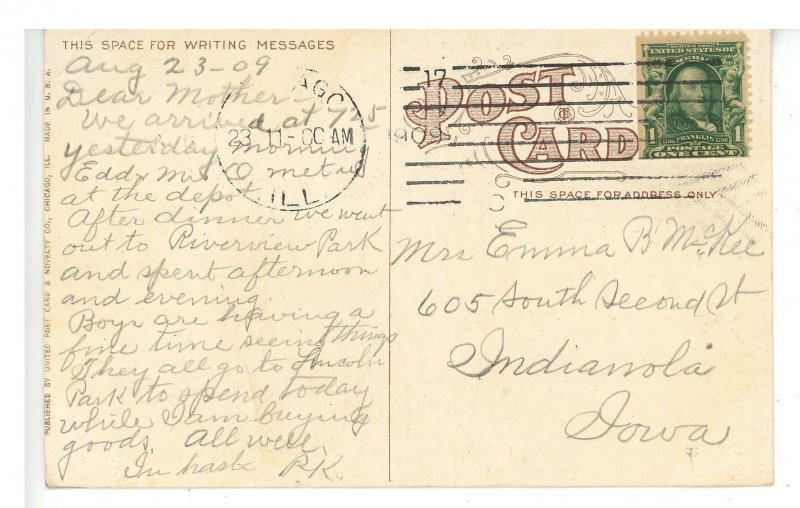 THIS SPACE FOR WRITING MESSAGES
Aug 23-09
Dear Mother-
We arrived at 7 25
yesterday morning
Eddy Mrs O met us
at the depot.
After dinner we went
out to Riverview Park
and spent afternoon
and evening.
Boys are having a
fine time seeing things
They all go to Lincoln
Park to spend today
while I am buying
goods. All well.
In haste R.K.
PUBLISHED BY UNITED POST CARD & NOVELTY CO., CHICAGO, ILL. MADE IN U.S.A.
AGO
23 11-00 AM
ILL
17
1909
POST
CARD
SERIES 1902
FRANKLIN
1 POSTAGE 1
ONE CENT
THIS SPACE FOR ADDRESS ONLY
Mrs Emma B McKee
605 South Second St
Indianola
Iowa